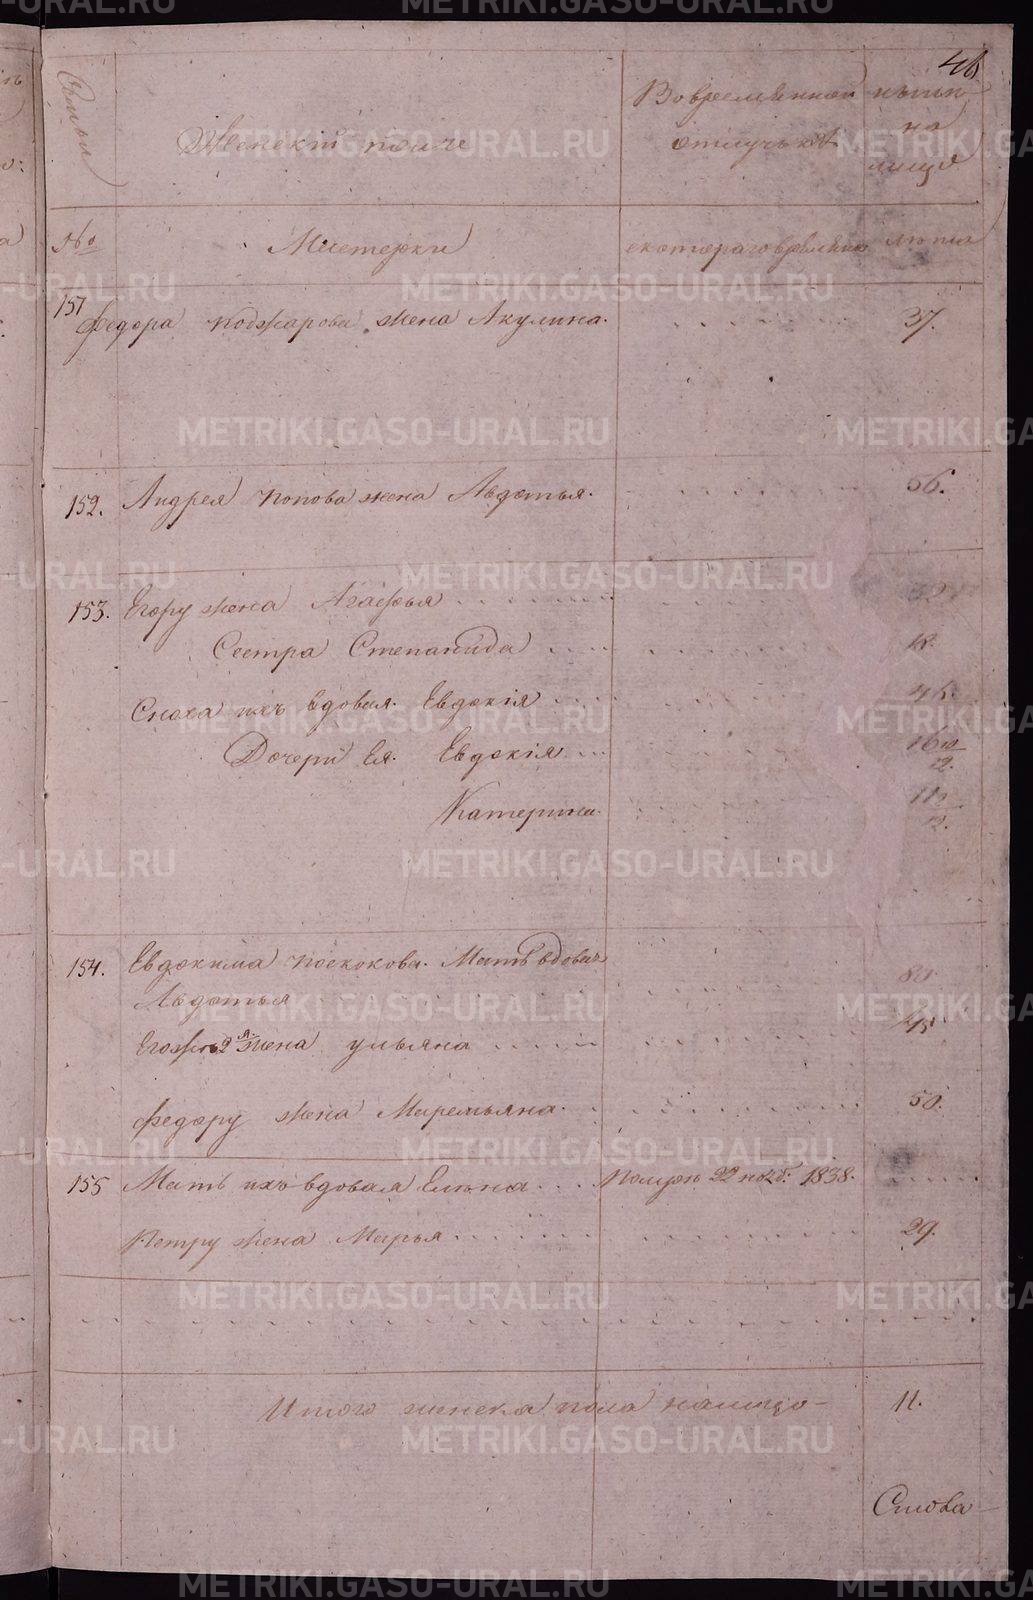 46
Семьи
Женский полъ
Во временной
отлучкѣ
нынѣ
на
лицо
№
Мастерки
с котораго времени
лѣта
151
Федора Поджарова жена Акулина.
37.
152. Андрея Попова жена Авдотья.
56.
153. Егору жена Агафья
Сестра Степанида
Сноха ихъ вдовая. Евдокія
Дочери Ея. Евдокія
16 10/12.
Катерина.
154. Евдокима Поскокова. Мать вдовая
Авдотья
80.
Егожъ 2я. жена ульяна
45.
Федору жена Маремьяна.
50.
155 Мать ихъ вдовая Елена
Помре 22 нояб: 1838.
Петру жена Марья
29.
Итого женска пола налицо
11.
Слова
METRIKI.GASO-URAL.RU